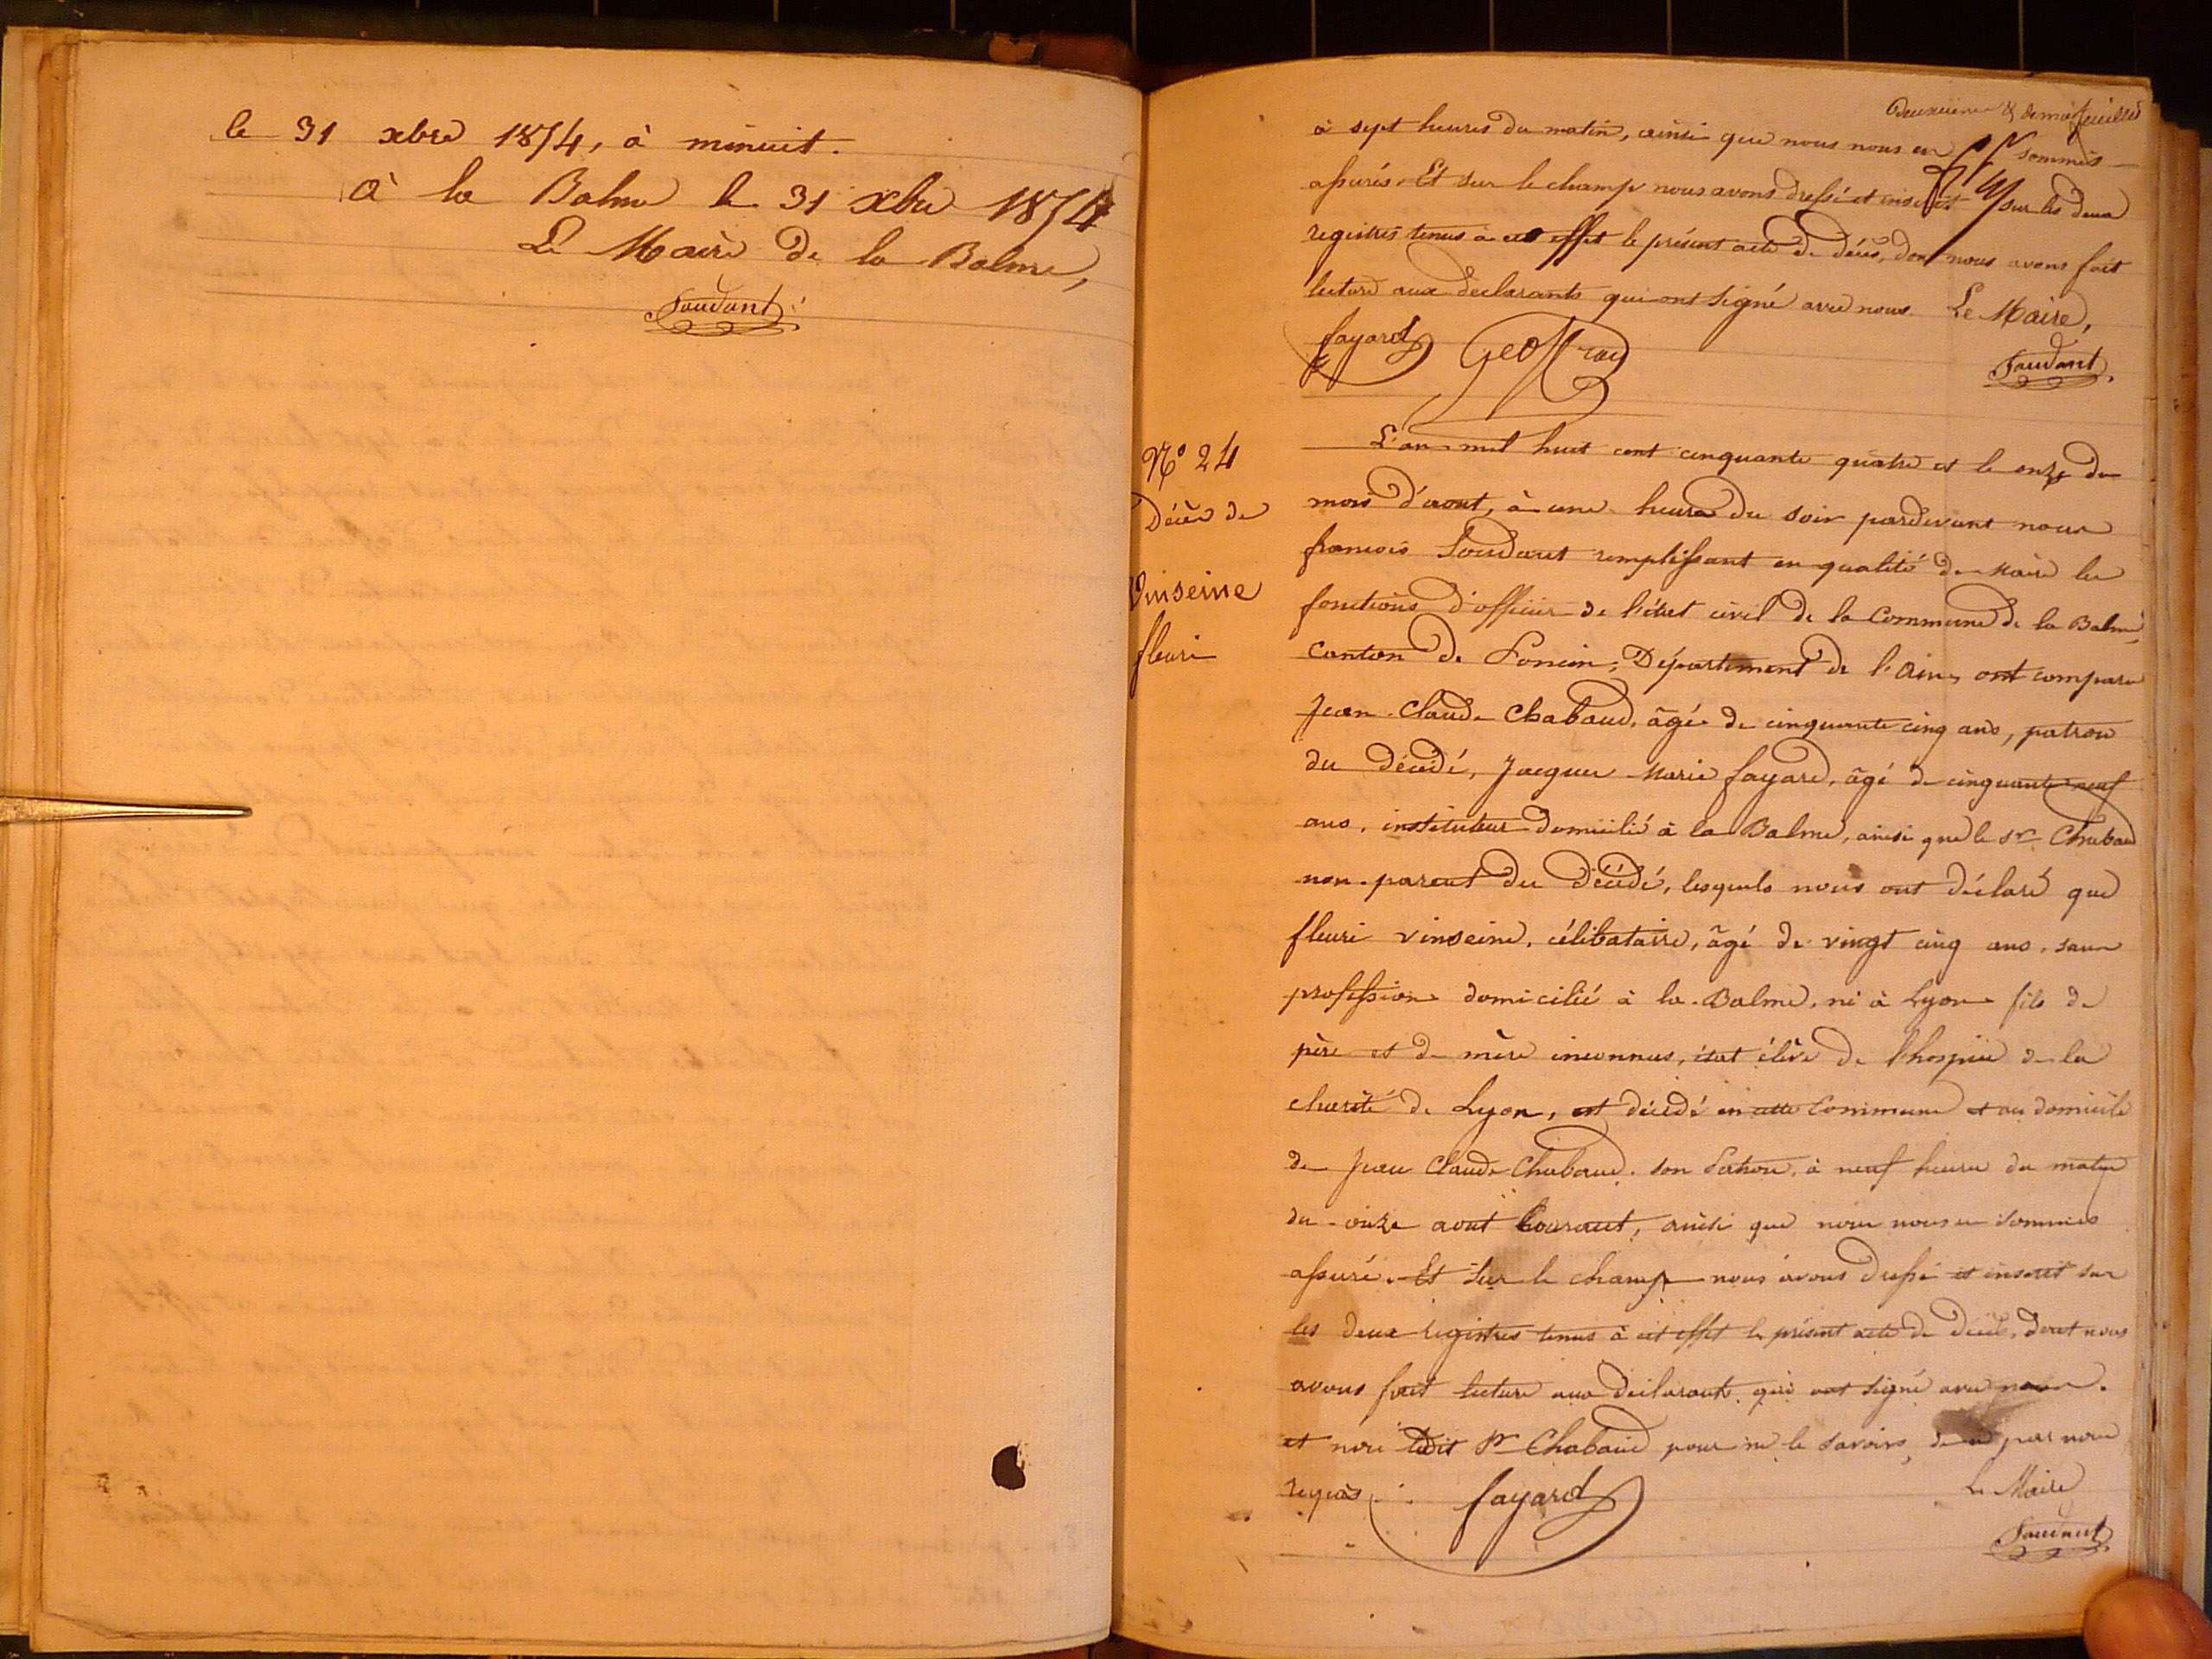 le 31 xbre 1874, à minuit.
à la Balme le 31 xbre 1874
Le Maire de la Balme,
Soudant
Deuxième & demi feuillet
à sept heures du matin, ainsi que nous nous en sommes
assurés. Et sur le champ nous avons dressé et inscrit sur les deux
registres tenus à cet effet le présent acte de décès, dont nous avons fait
lecture aux declarants qui ont signé avec nous. Le Maire,
fayard Geoffray
Soudant
N° 24
Décès de
Vinseine
fleuri
L'an mil huit cent cinquante quatre et le onze du
mois d'aout, à une heure du soir pardevant nous
francois Soudant remplissant en qualité de Maire les
fonctions d'officier de l'état civil de la Commune de la Balme,
Canton de Poncin, Département de l'Ain, ont comparu
Jean-Claude Chabaud, âgé de cinquante cinq ans, patron
du décédé, Jacques Marie fayard, âgé de cinquante neuf
ans, instituteur domicilié à la Balme, ainsi que le Sr Chabaud
non parent du décédé, lesquels nous ont déclaré que
fleuri vinseine, célibataire, âgé de vingt cinq ans, sans
profession domicilié à la Balme, né à Lyon fils de
père et de mère inconnus, élève de l'hospice de la
charité de Lyon, est décédé en cette Commune et au domicile
de Jean Claude Chabaud, son Patron, à neuf heures du matin
du onze aout Courant, ainsi que nous nous en sommes
assuré. Et sur le champ nous avons dressé et inscrit sur
les deux registres tenus à cet effet le présent acte de décès, dont nous
avons fait lecture aux déclarants qui ont signé avec nous.
et non ledit Sr Chabaud pour ne le savoir, de ce par nous
requis. fayard
Le Maire
Soudant